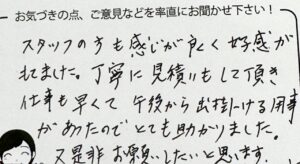 お気づきの点、ご意見などを率直にお聞かせ下さい！
スタッフの方も感じが良く好感が
もてました。丁寧に見積りもして頂き
仕事も早くて午後から出掛ける用事
があったのでとても助かりました。
又是非お願いしたいと思います。